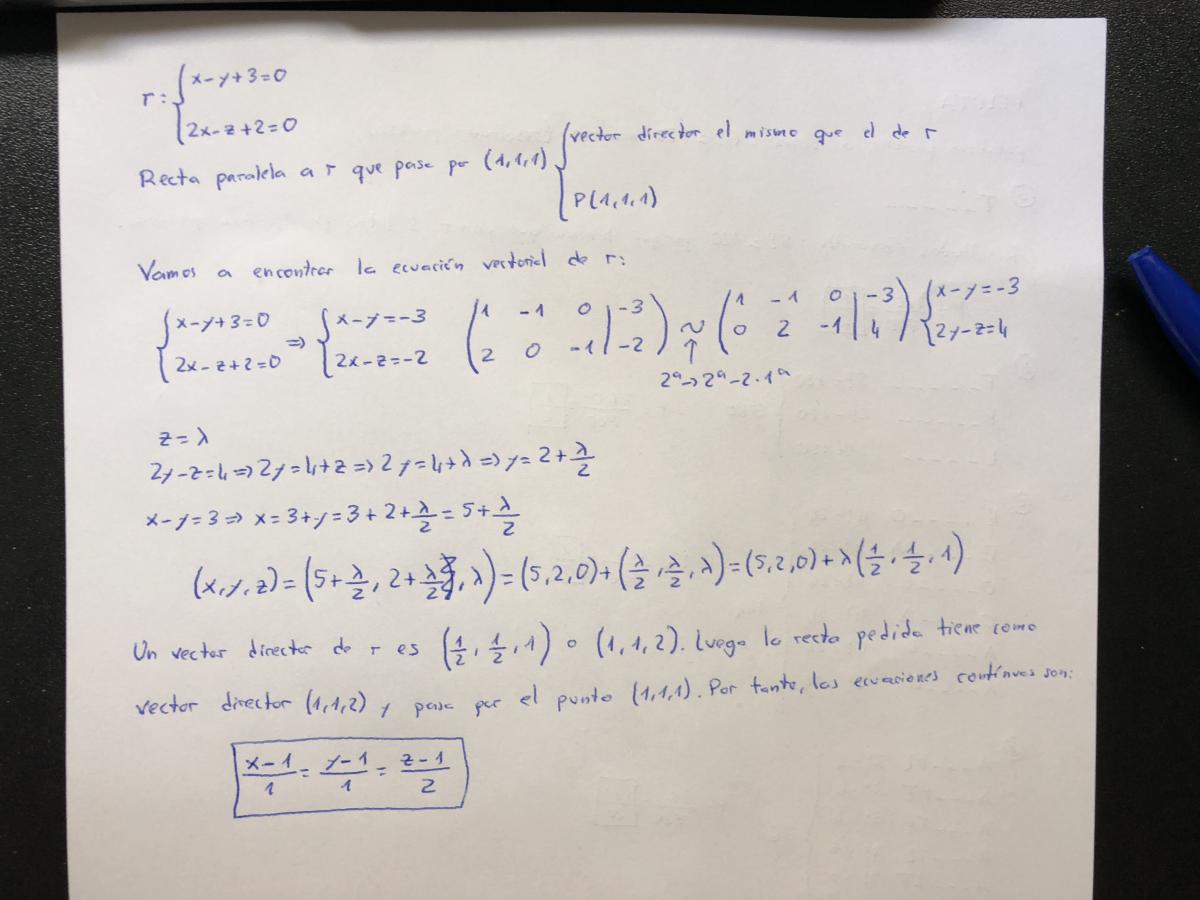 r: { x-y+3=0
2x-z+2=0
Recta paralela a r que pasa por (1,1,1) { vector director el mismo que el de r
P(1,1,1)
Vamos a encontrar la ecuación vectorial de r:
{ x-y+3=0 ⇒ { x-y=-3 ( 1 -1 0 | -3 ) ~ ( 1 -1 0 | -3 ) { x-y=-3
2x-z+2=0 2x-z=-2 2 0 -1 | -2 ↑ 0 2 -1 | 4 2y-z=4
2ª→2ª-2·1ª
z=λ
2y-z=4⇒2y=4+z⇒2y=4+λ⇒y=2+λ/2
x-y=3⇒x=3+y=3+2+λ/2=5+λ/2
(x,y,z)=(5+λ/2, 2+λ/2, λ)=(5,2,0)+(λ/2, λ/2, λ)=(5,2,0)+λ(1/2, 1/2, 1)
Un vector director de r es (1/2, 1/2, 1) o (1,1,2). Luego la recta pedida tiene como
vector director (1,1,2) y pasa por el punto (1,1,1). Por tanto, las ecuaciones contínuas son:
x-1/1 = y-1/1 = z-1/2